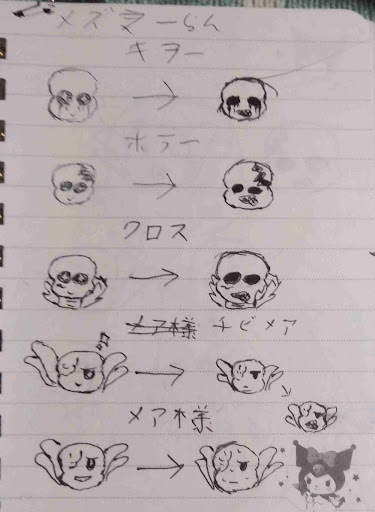 メズマーらん
キラー
ホラー
クロス
チビメア
メア様